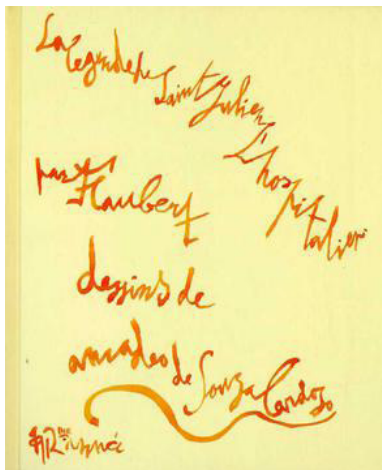 La Légende de Saint Julien L'hospitalier
par Flaubert
dessins de
amadeo de Souza Cardoso